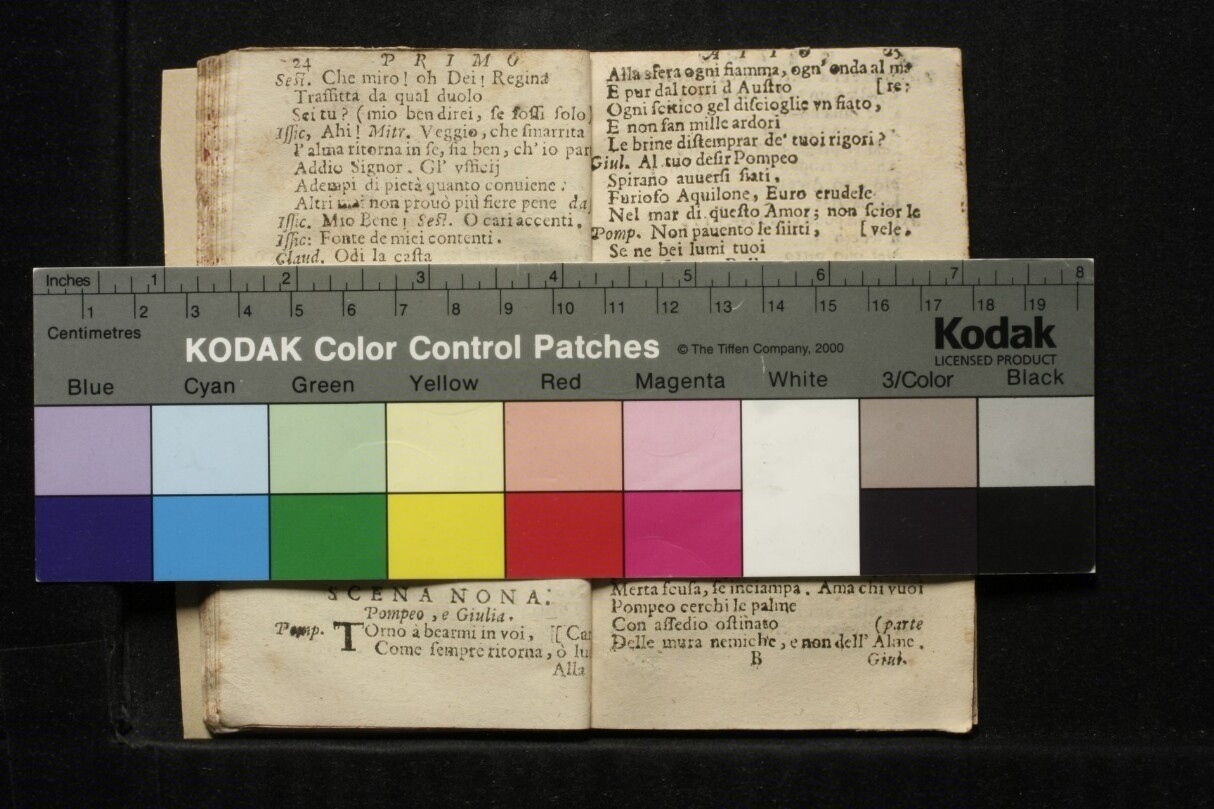 24 PRIMO
Sest. Che miro! oh Dei! Regina
Traffitta da qual duolo
Sei tu? (mio ben direi, se fossi solo)
Issic, Ahi! Mitr. Veggio, che smarrita
l'alma ritorna in se, sia ben, ch'io par
Addio Signor. Gl' vfficij
Adempi di pietà quanto conuiene:
Altri mai non prouò più fiere pene da
Issic. Mio Bene! Sest. O cari accenti.
Issic: Fonte de miei contenti.
Claud. Odi la casta
SCENA NONA.
Pompeo, e Giulia.
Pomp. TOrno à bearmi in voi, [Car
Come sempre ritorna, ò lu
Alla
ATTO 25
Alla sfera ogni fiamma, ogn'onda al ma
E pur dal torri d Austro [re;
Ogni scitico gel discioglie vn fiato,
E non fan mille ardori
Le brine distemprar de' tuoi rigori?
Giul. Al tuo desir Pompeo
Spirano auuersi fiati.
Furioso Aquilone, Euro crudele
Nel mar di questo Amor; non scior le
Pomp. Non pauento le sirti, [vele.
Se ne bei lumi tuoi
Merta scusa, se inciampa. Ama chi vuoi
Pompeo cerchi le palme
Con assedio ostinato (parte
Delle mura nemiche, e non dell'Alme.
B Giul.
Inches 1 2 3 4 5 6 7 8
1 2 3 4 5 6 7 8 9 10 11 12 13 14 15 16 17 18 19
Centimetres
KODAK Color Control Patches © The Tiffen Company, 2000
Kodak
LICENSED PRODUCT
Blue Cyan Green Yellow Red Magenta White 3/Color Black